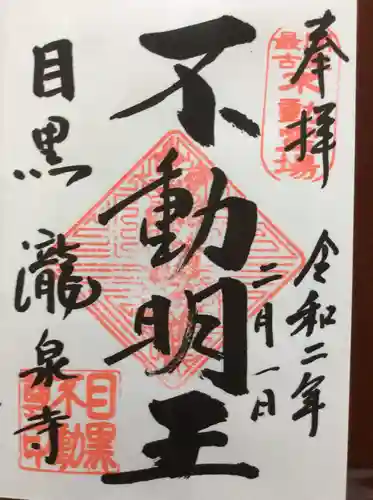 奉拝
令和二年
二月一日
不動明王
目黒
瀧泉寺
最古不動霊場
目黒不動